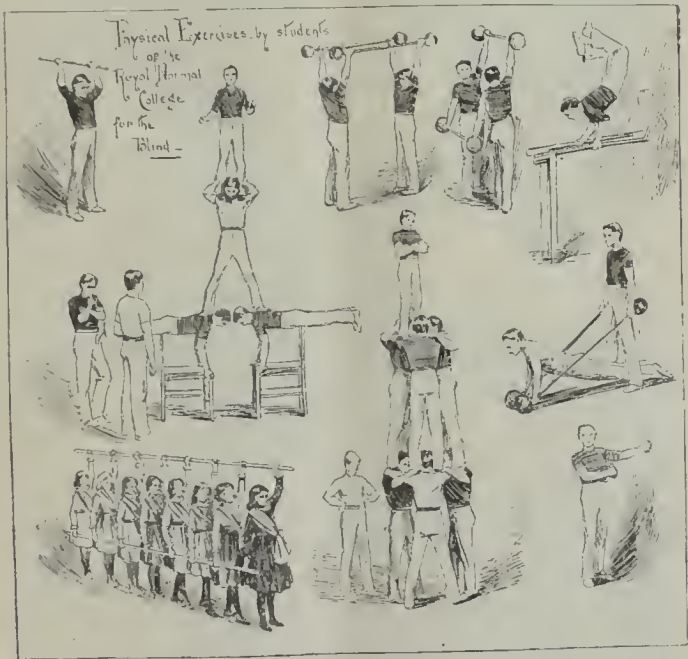 Physical Exercises by students
of the
Royal Normal
College
for the
Blind_